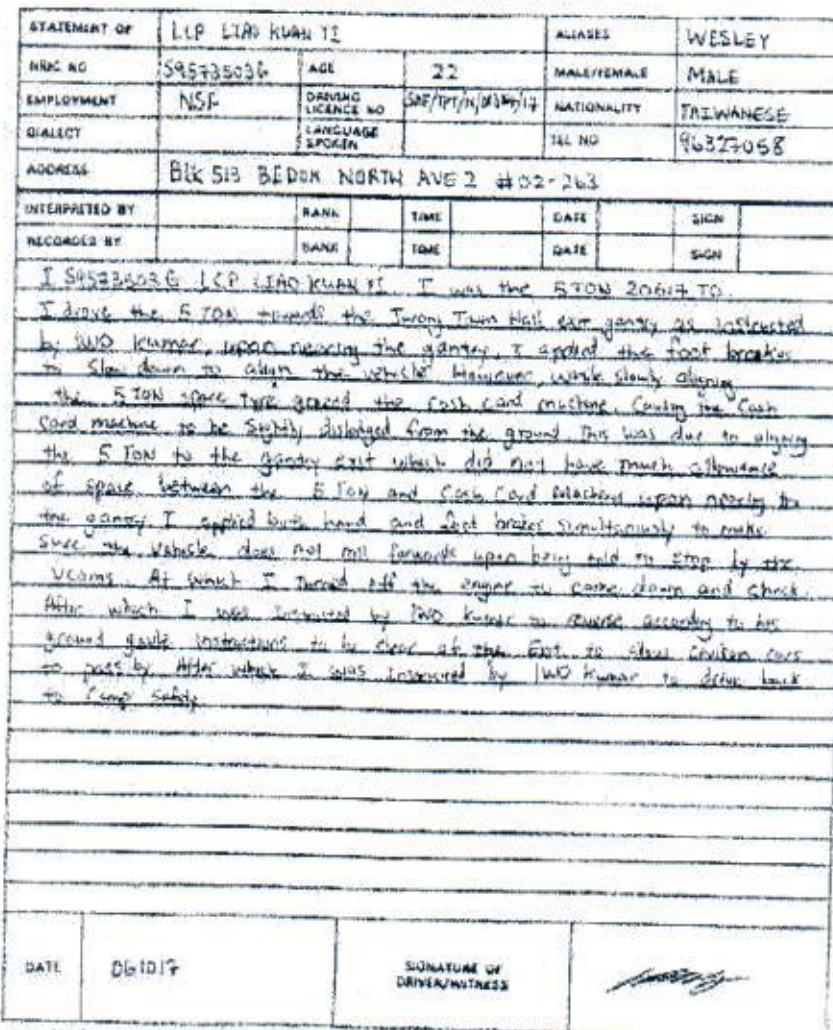 STATEMENT OF LCP LIAO KUAN YI ALIASES WESLEY
NRIC NO S9573503G AGE 22 MALE/FEMALE MALE
EMPLOYMENT NSF DRIVING LICENCE NO NATIONALITY TAIWANESE
DIALECT LANGUAGE SPOKEN TEL NO 96327058
ADDRESS Blk 513 BEDOK NORTH AVE 2 #02-263
INTERPRETED BY RANK TIME DATE SIGN
RECORDED BY RANK TIME DATE SIGN
I S9573503G LCP LIAO KUAN YI. I was the 5 TON 20617 TO.
I drove the 5 TON towards the Jurong Town Hall exit gantry as instructed
by 1WO Kumar, upon nearing the gantry, I applied the foot breakes
to slow down to align the vehicle. However, while slowly aligning
the 5 TON spare tyre grazed the cash card machine. Causing the Cash
Card machine to be slightly dislodged from the ground. This was due to aligning
the 5 TON to the gantry exit which did not have much allowance
of space between the 5 TON and Cash Card Machine upon nearing
the gantry. I applied both hand and foot brakes simultaniously to make
sure the vehicle does not roll forwards upon being told to stop by the
Vcoms. At which I turned off the engine to come down and check.
After which I was instructed by 1WO Kumar to reverse according to his
ground guide instructions to be clear of the Exit to allow civilian cars
to pass by. After which I was instructed by 1WO Kumar to drive back
to Camp safely.
DATE 061017 SIGNATURE OF DRIVER/WITNESS